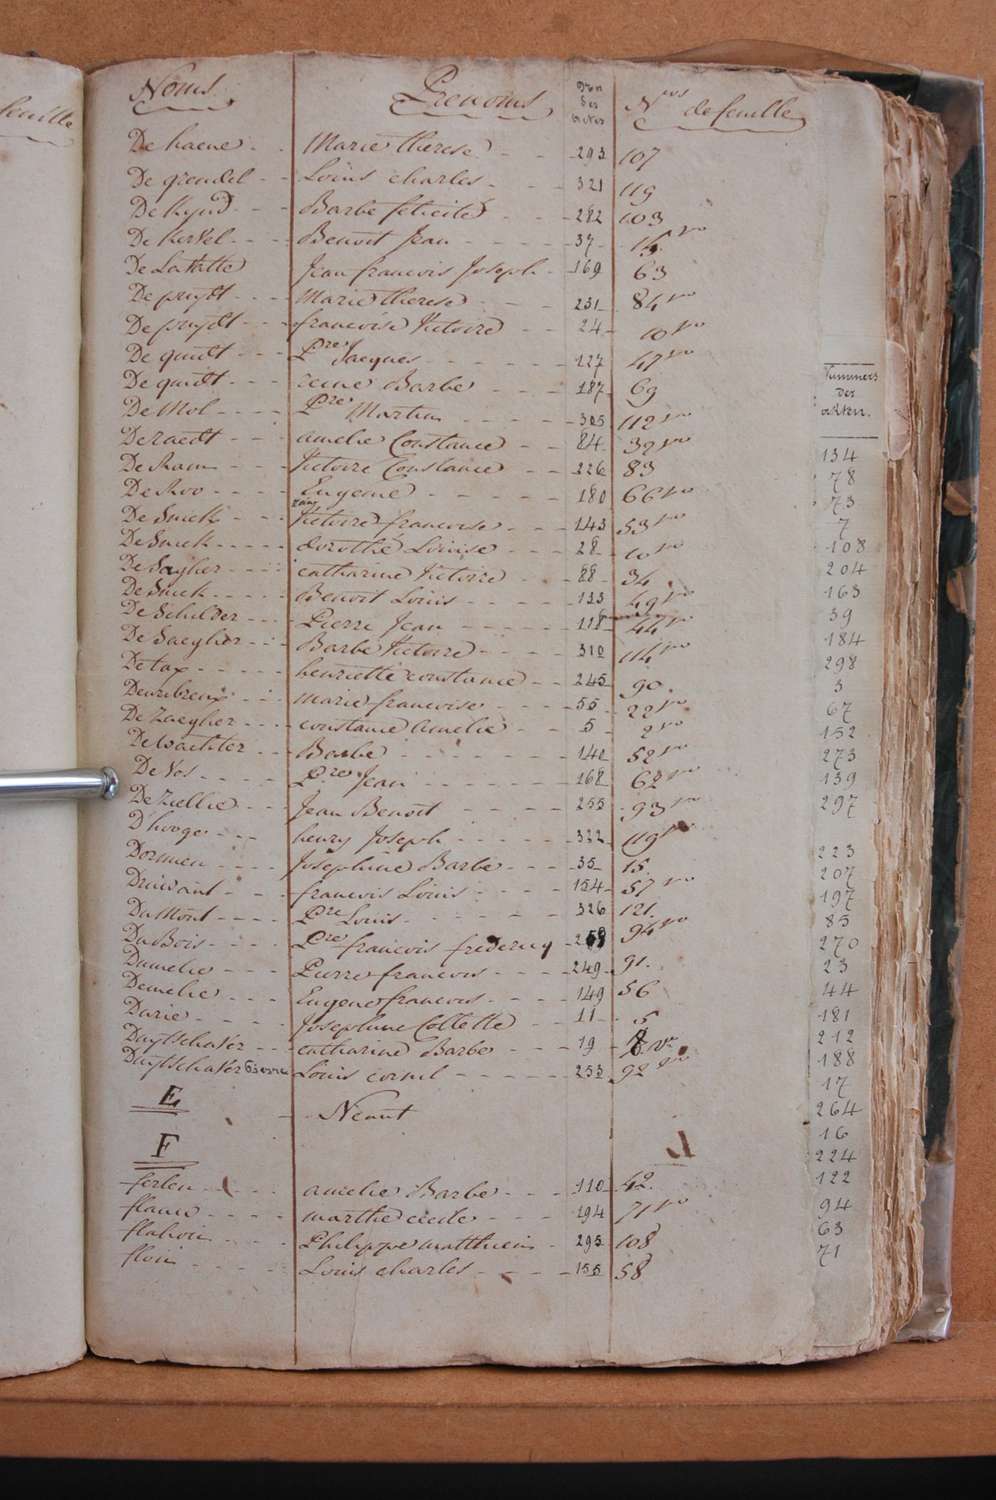 feuille
Noms Prenoms Nros des Actes Nros de feuille
De haene Marie therese 293 107
De grendel Louis charles 321 119
De Kynd Barbe felicité 282 103
De Kersel Benoit Jean 37 15 vo
De Lattatte Jean francois Joseph 169 63
De pruyst Marie therese 231 84 vo
De pruydt francoise Victoire 24 10 vo
De quidt Pre Jacques 127 47 vo
De quidt reine Barbe 187 69
De Mol Pre Martin 305 112 vo
De raedt amelie Constance 84 32 vo
De Ram Victoire Constance 226 83
De Roo Eugenie 180 66 vo
De Snick Victoire francoise 143 53 vo
De Snick dorothé Louise 28 10 vo
De Sagher catharine Victoire 88 34
De Snick Benoit Louis 133 49 vo
De Schilder Pierre Jean 118 44 vo
De Saegher Barbe Victoire 310 114 vo
De tax henriette constance 245 90
Deurbreux marie francoise 55 22 vo
De Zaegher constance amelie 5 2 vo
De Wachter Barbe 140 52 vo
De Vos Pre Jean 168 62 vo
De Zuttie Jean Benoit 255 93 vo
D'hooge henry Joseph 322 119 vo
Dormieu Josephine Barbe 35 15
Druwant francois Louis 154 57 vo
Du Mont Pre Louis 326 121
Du Bois Pre francois frederiq 259 94 vo
Dumelie Pierre francois 249 91
Demelie Eugene francois 149 56
Durie Josephine Collette 11 5
Duytschaver catharine Barbe 19 8 vo
Duytschaver Louis cornil 253 92 vo
E Néant
F
ferlen amelie Barbe 110 42
flauw marthe cécile 194 71 vo
flahou Philippe matthieu 295 108
floin Louis charles 155 58
Nummers
der
akten.
134
78
73
7
108
204
163
39
184
298
3
67
152
273
139
297
223
207
197
85
270
23
44
181
212
188
17
264
16
224
122
94
63
71